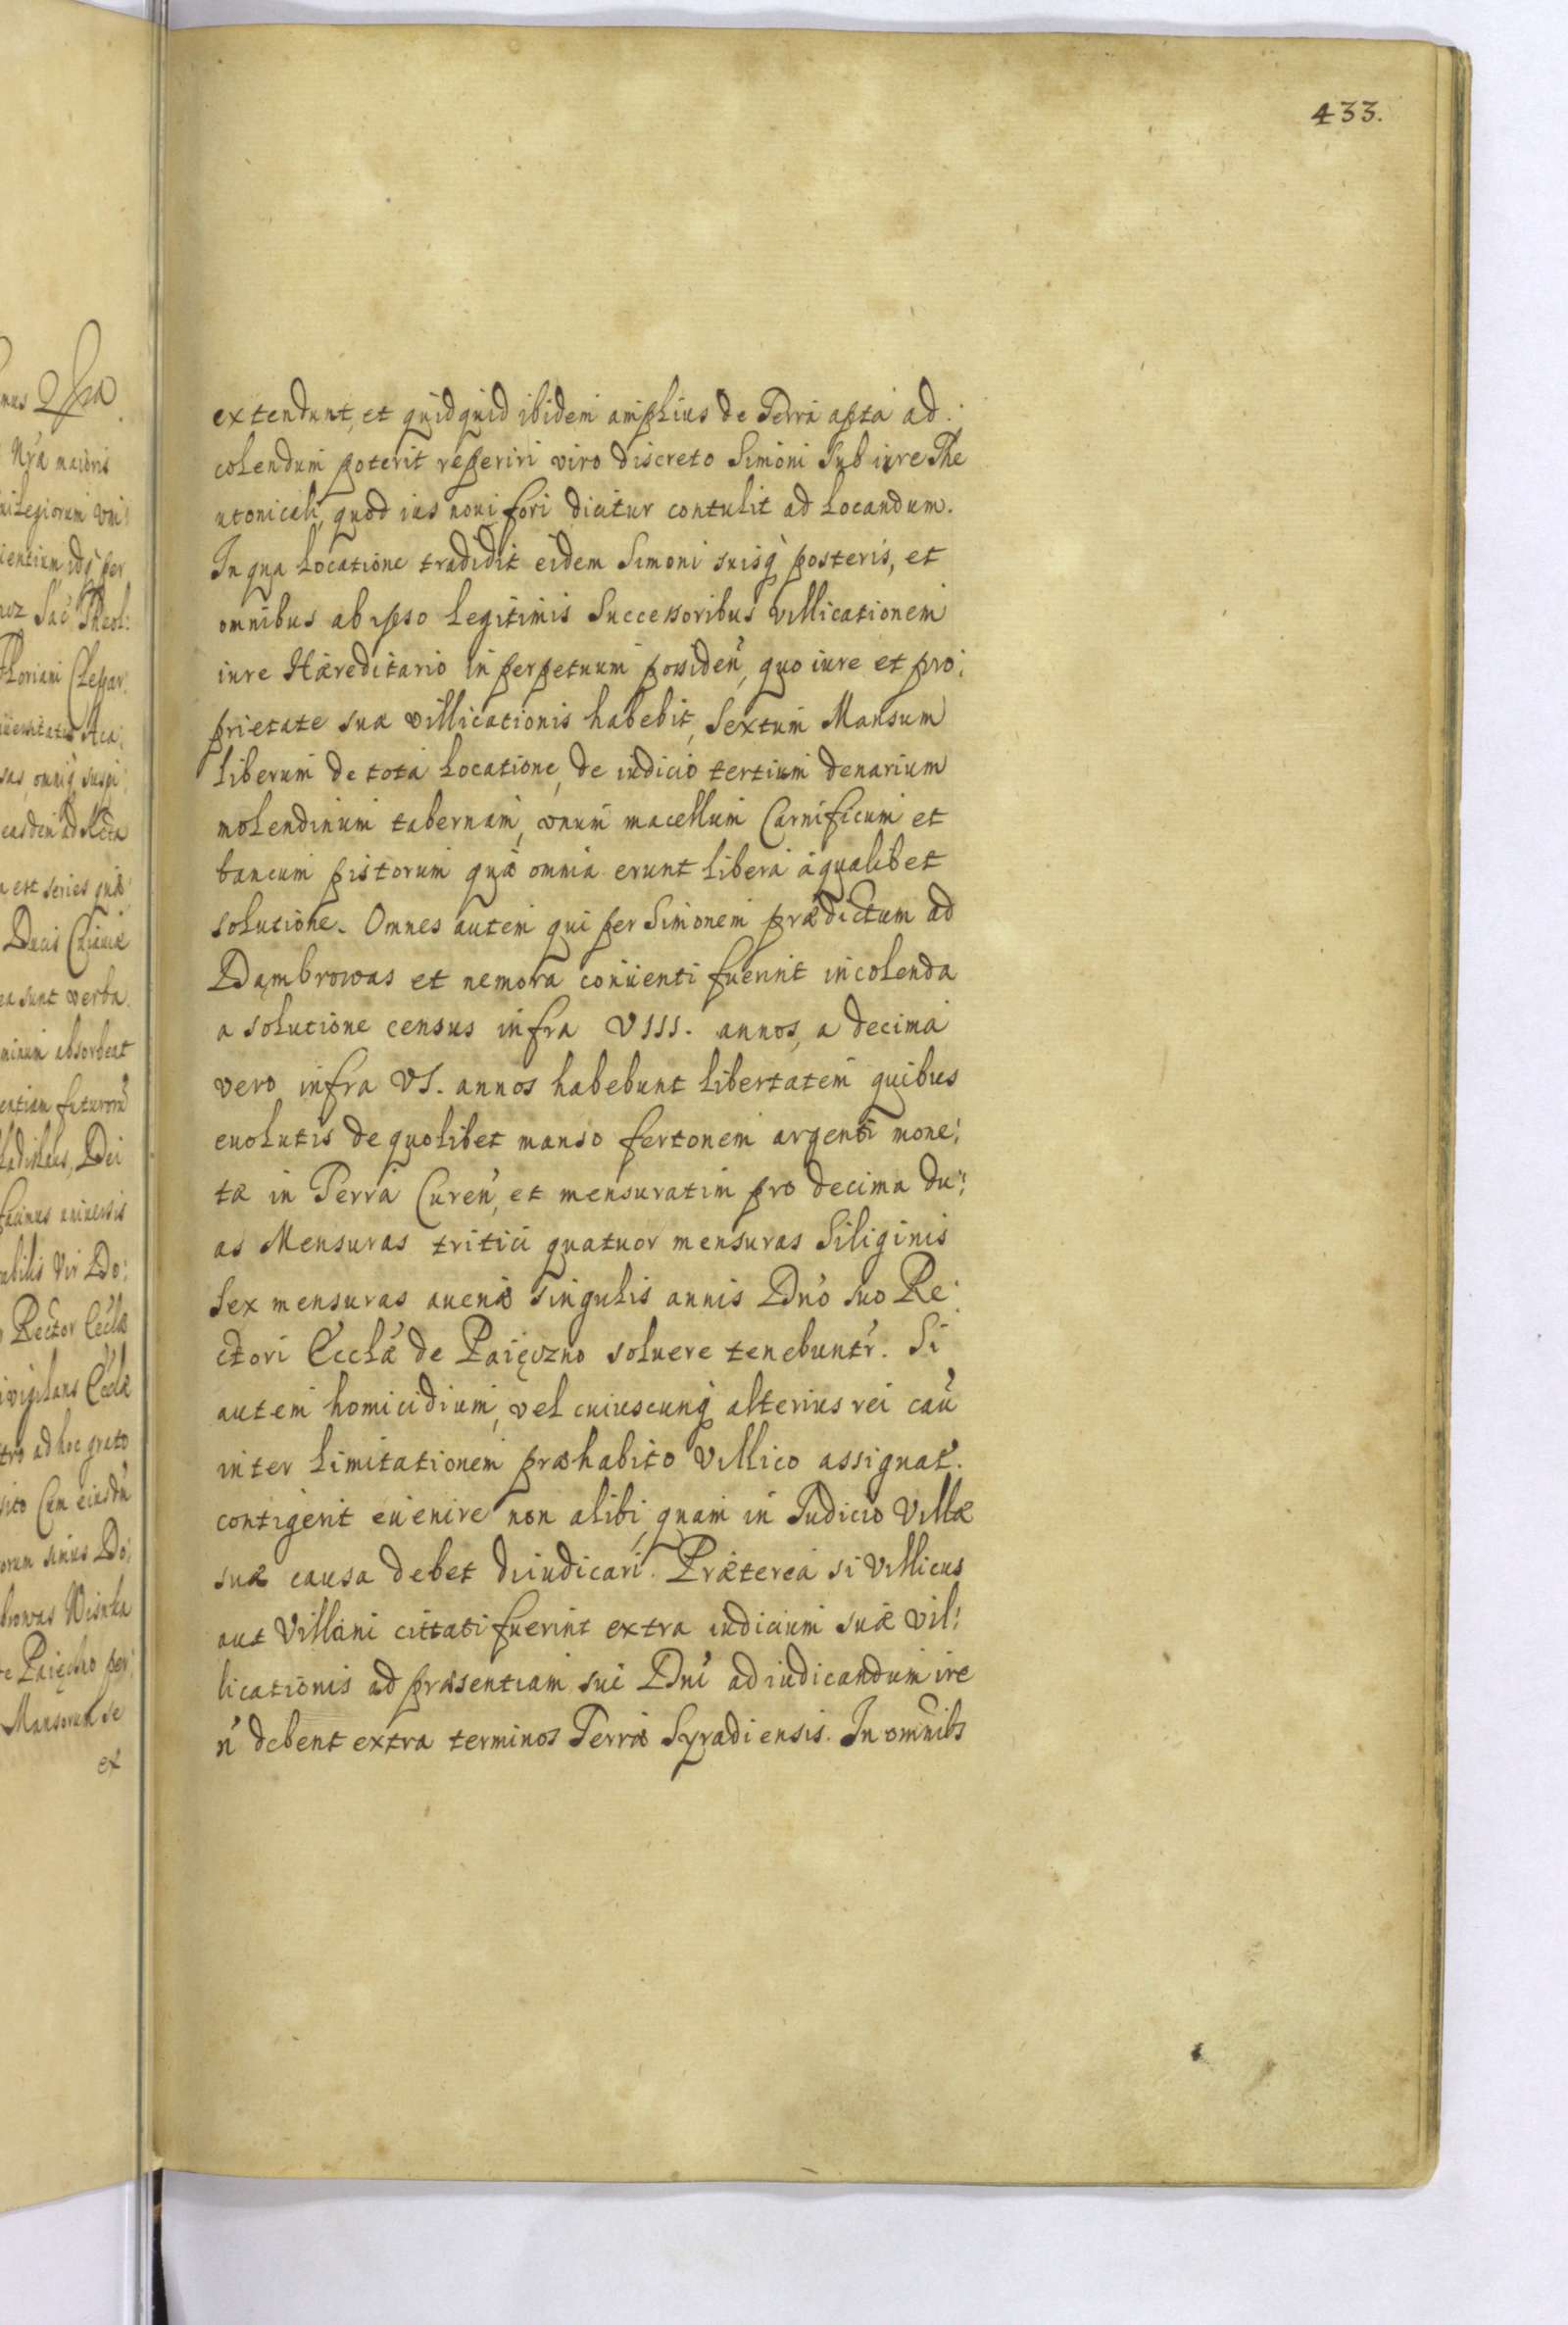 433.
extendunt, et quidquid ibidem amplius de Terra apta ad:
colendum poterit reperiri viro discreto Simoni sub iure The
utonicali, quod ius noui fori dicitur contulit ad Locandum.
In qua Locatione tradidit eidem Simoni suisq̀ posteris, et
omnibus ab ipso Legitimis Successoribus villicationem
iure Hæreditario in perpetuum possideń, quo iure et pro:
prietate suæ villicationis habebit, Sextum Mansum
liberum de tota Locatione, de iudicio tertium denarium
molendinum tabernam, vnum macellum Carnificum et
bancum pistorum quæ omnia erunt libera à qualibet
solutione. Omnes autem qui per Simonem prædictum ad
Dąmbrowas et nemora conuenti fuerint incolenda
a solutione census infra VIII. annos, a decima
vero infra VI. annos habebunt libertatem quibus
euolutis de quolibet manso fertonem argenti mone:
tæ in Terra Cureń, et mensuratim pro decima du:
as Mensuras tritici quatuor mensuras Siliginis
Sex mensuras auenæ singulis annis Dńo suo Re:
ctori Ecclæ de Paięczno soluere tenebuntŕ. Si
autem homicidium, vel cuiuscunq̀ alterius rei caú
inter Limitationem præhabito Villico assignat́.
contigerit euenire non alibi, quam in Judicio Villæ
suæ causa debet diiudicari. Præterea si Villicus
aut Villani cittati fuerint extra iudicium suæ vil:
licationis ad præsentiam sui Dńi ad iudicandum ire
ń debent extra terminos Terræ Syradiensis. In omnibs
nus
Nŕa maioris
ilegiorum vni:
ientium idq̀ per
Sać Theol:
Floriani Clepar:
Aca:
sas, omniq̀ suspi:
easdem ad Acta
est series quæ
Ducis
ea sunt verba
minum absorbeat
futuroru
Dei
facimus vniuersis
Vir Do:
Rector Ecclæ
Ecclæ
ad hoc grato
Do:
per:
Mansorum se
ex